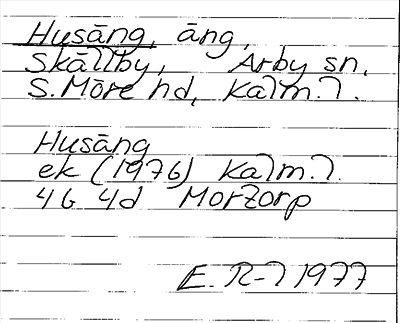 Husäng, äng,
Skällby, Arby sn,
S. Möre hd, Kalm. l.
Husäng
ek (1976) Kalm. l.
4G 4d Mortorp
E. R-l 1977